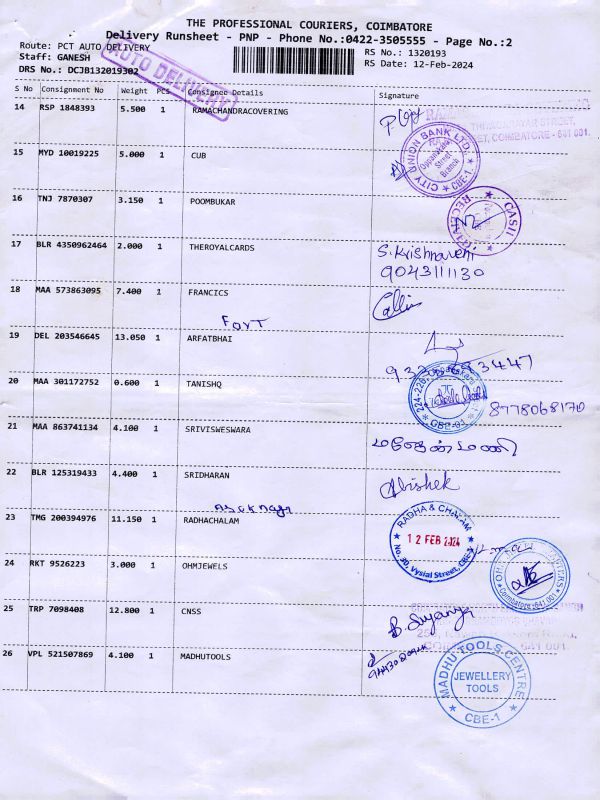 THE PROFESSIONAL COURIERS, COIMBATORE
Delivery Runsheet - PNP - Phone No.:0422-3505555 - Page No.:2
Route: PCT AUTO DELIVERY
RS No.: 1320193
Staff: GANESH
RS Date: 12-Feb-2024
DRS No.: DCJB132019302
AUTO DELIVERY
S No Consignment No Weight PCS Consignee Details Signature
14 RSP 1848393 5.500 1 RAMACHANDRACOVERING
COIMBATORE - 641 001.
15 MYD 10019225 5.000 1 CUB
CITY UNION BANK LTD.
Oppanakara Street Branch
CBE-1
16 TNJ 7870307 3.150 1 POOMBUKAR
CASH
17 BLR 4350962464 2.000 1 THEROYALCARDS
S. Krishnaveni
9043111130
18 MAA 573863095 7.400 1 FRANCICS
Fort
19 DEL 203546645 13.050 1 ARFATBHAI
20 MAA 301172752 0.600 1 TANISHQ
CBE-01
8778068170
21 MAA 863741134 4.100 1 SRIVISWESWARA
22 BLR 125319433 4.400 1 SRIDHARAN
Abishek
23 TMG 200394976 11.150 1 RADHACHALAM
RADHA & CHAYAM
12 FEB 2024
No. 30, Vysial Street, CBE-1
24 RKT 9526223 3.000 1 OHMJEWELS
Coimbatore-641 001
25 TRP 7098408 12.800 1 CNSS
641 001.
26 VPL 521507869 4.100 1 MADHUTOOLS
MADHU TOOLS CENTRE
JEWELLERY
TOOLS
CBE-1